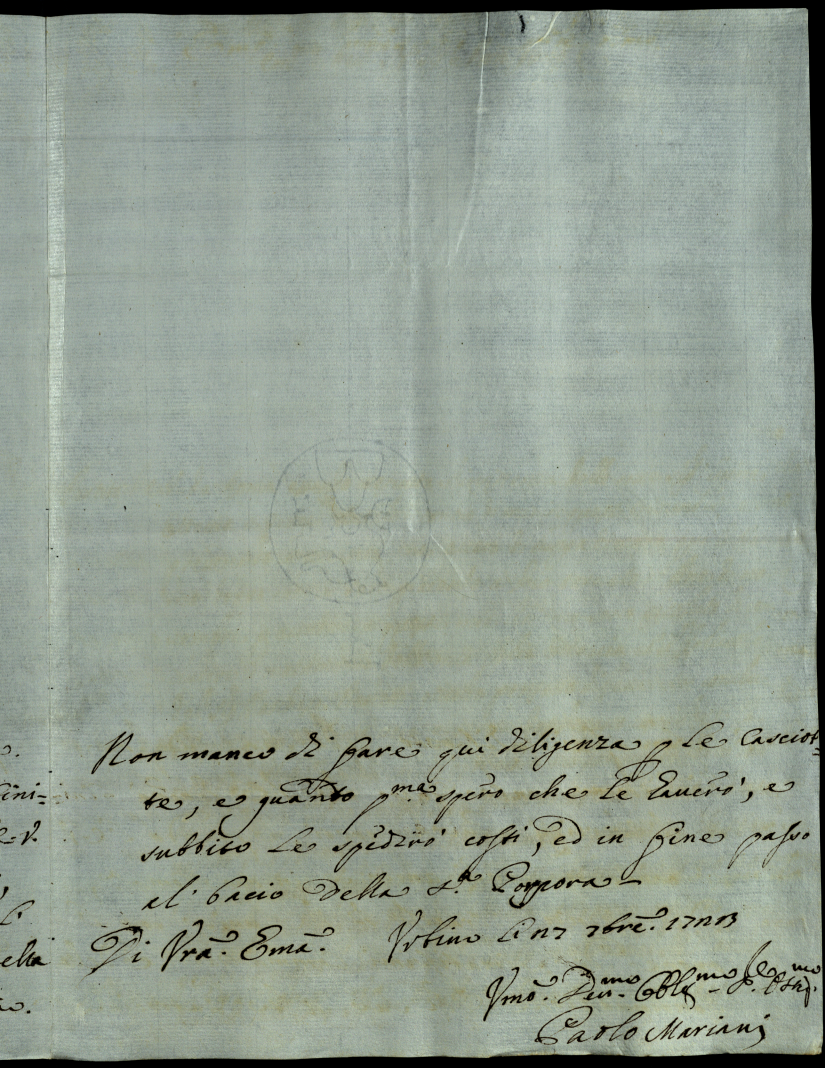 Non manco di fare qui diligenza p le casciot=
te, e quanto pma spero che le haverò, e
subbito le spedirò costi, ed in fine passo
al bacio della Sa. Porpora
Di Vra. Ema. Urbino li 7bre.
Umo. Devmo. Oblgmo
Paolo Mariani
o.
ini=
li
ella